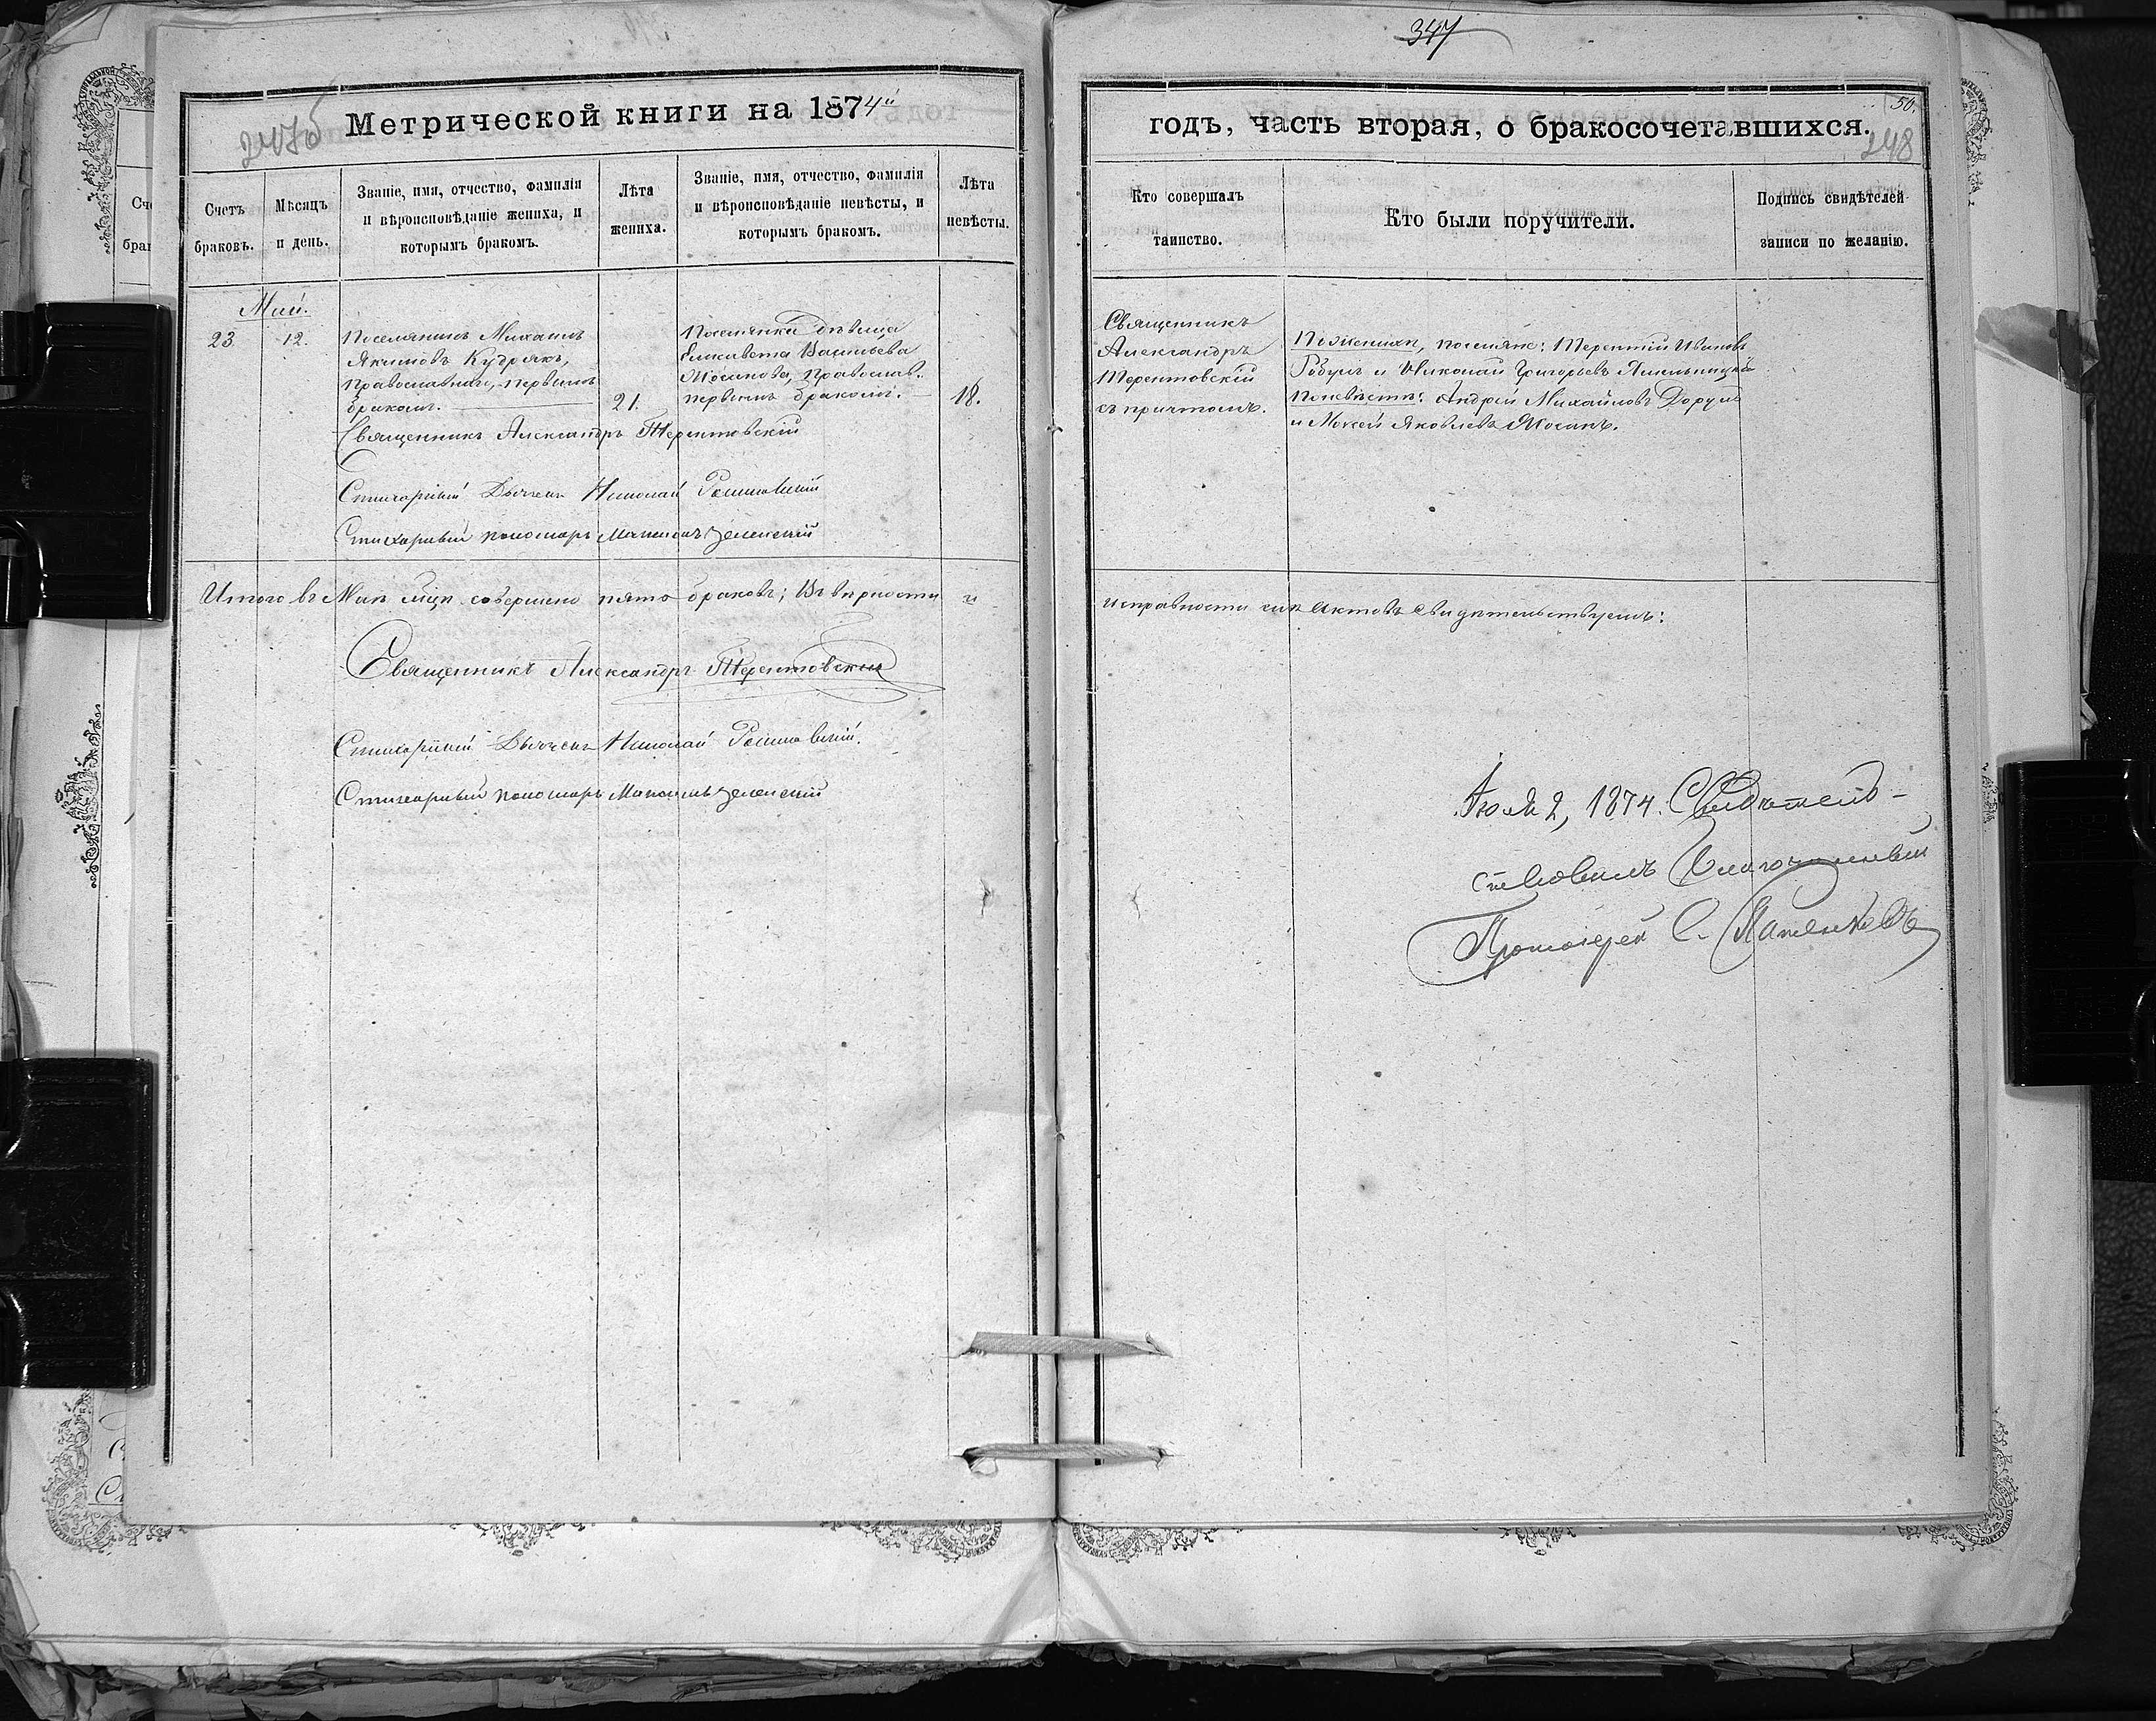 347
247об
Метрической книги на 1874й
годъ, часть вторая, о бракосочетавшихся.
50.
248
Счетъ
браковъ.
Мѣсяцъ
и день.
Званіе, имя, отчество, фамилія
и вѣроисповѣданіе жениха, и
которымъ бракомъ.
Лѣта
жениха.
Званіе, имя, отчество, фамилія
и вѣроисповѣданіе невѣсты, и
которымъ бракомъ.
Лѣта
невѣсты.
Кто совершалъ
таинство.
Кто были поручители.
Подпись свидѣтелей
записи по желанію.
Май.
23.
12.
Поселянинъ Михаилъ
Якимовъ Кудрякъ,
православный, первымъ
бракомъ.
21.
Поселянка дѣвица
Елисавета Васильева
Мосинова, православ.
первымъ бракомъ.
18.
Священникъ
Александръ
Терентовскій
съ причтомъ.
По женихѣ, поселяне: Терентій Ивановъ
и Николай Григорьевъ
по невѣстѣ: Андрей Михайловъ
и Моисей Яковлевъ Мосинъ.
Священникъ Александръ Терентовскій
Стихарный Дьячекъ Николай
Стихарный пономарь Зеленскій
Итого въ Маѣ мцѣ совершено пять браковъ; Въ вѣрности и
исправности сихъ актовъ свидѣтельствуемъ:
Священникъ Александръ Терентовскій
Стихарный Дьячекъ Николай
Стихарный пономарь Зеленскій
Іюля 2, 1874. Свидѣтель-
ствовалъ Благочинный
Протоіерей С.